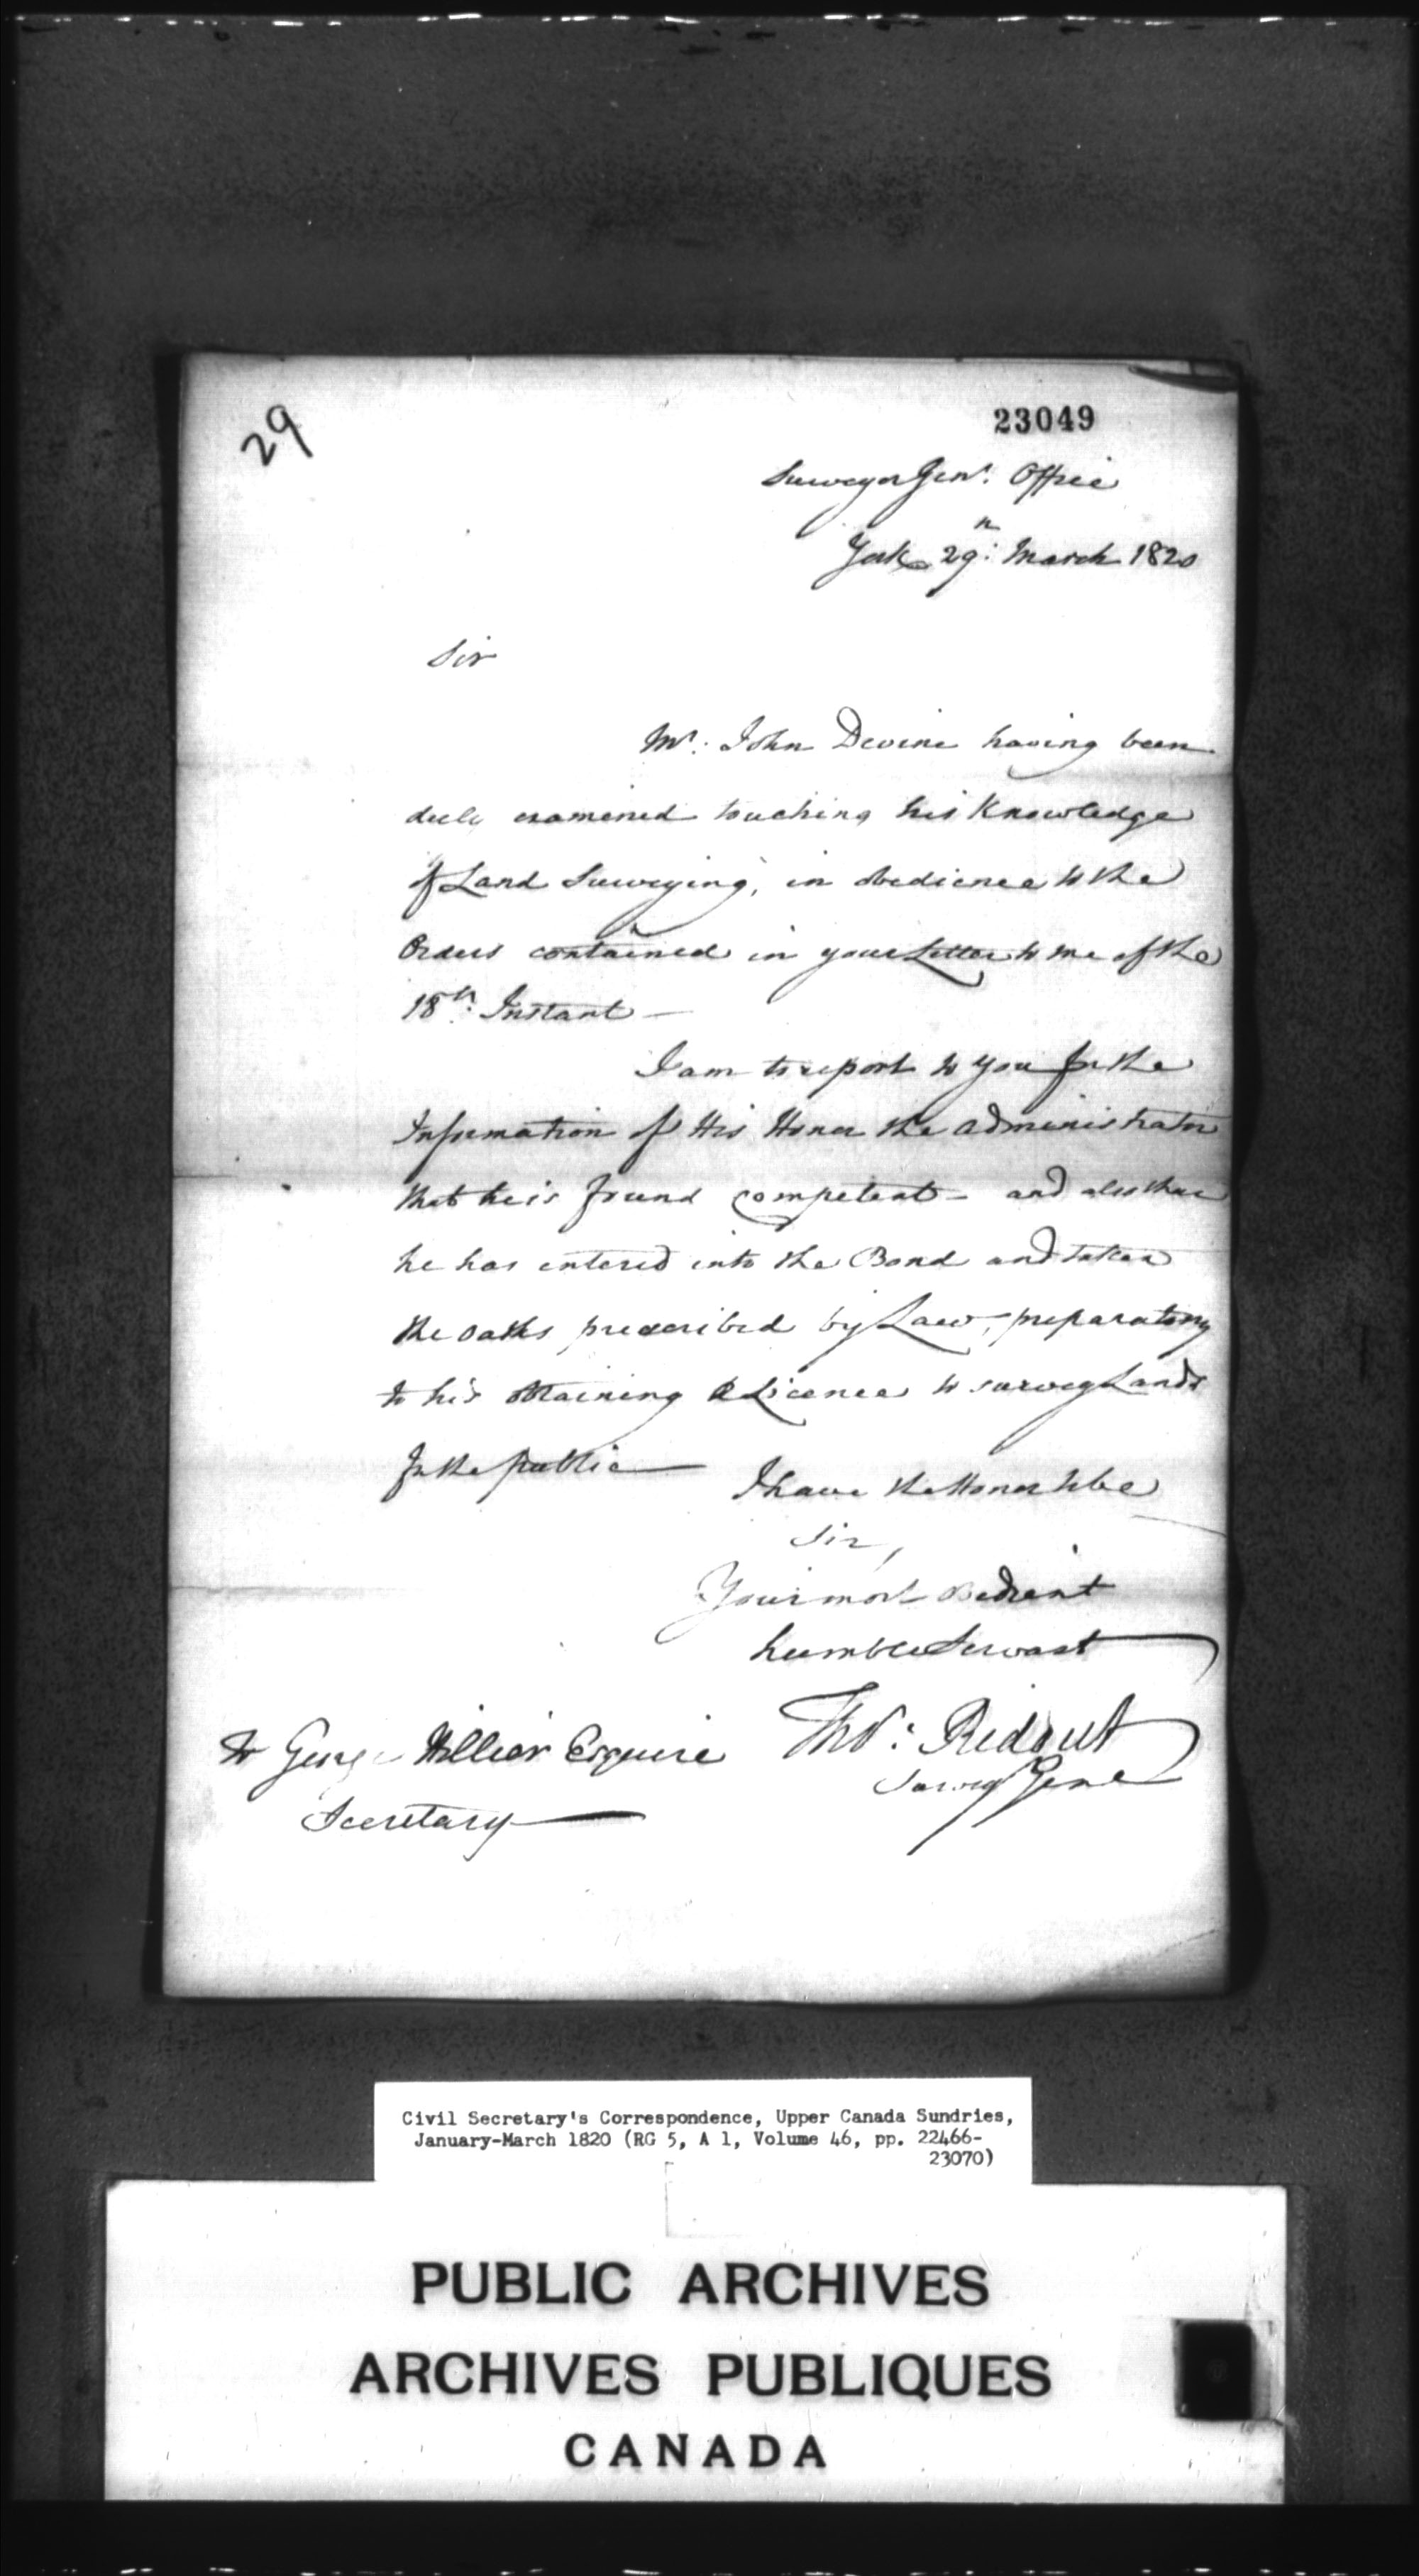 29
23049
Surveyor Genl. Office
York 29th: March 1820
Sir
Mr. John Devine having been
duly examined touching his Knowledge
of Land Surveying, in obedience to the
Orders contained in your Letter to me of the
18th: Instant —
I am to report to you for the
Information of His Honor the Administrator
that he is found competent - and also that
he has entered into the Bond and taken
the oaths prescribed by Law, preparatory
to his obtaining a Licence to survey Lands
for the public —
I have the Honor to be
Sir,
Your most obedient
humble Servant
Thos: Ridout
Survey Genl
To George Hillier Esquire
Secretary —
Civil Secretary's Correspondence, Upper Canada Sundries,
January-March 1820 (RG 5, A 1, Volume 46, pp. 22466-
23070)
PUBLIC ARCHIVES
ARCHIVES PUBLIQUES
CANADA